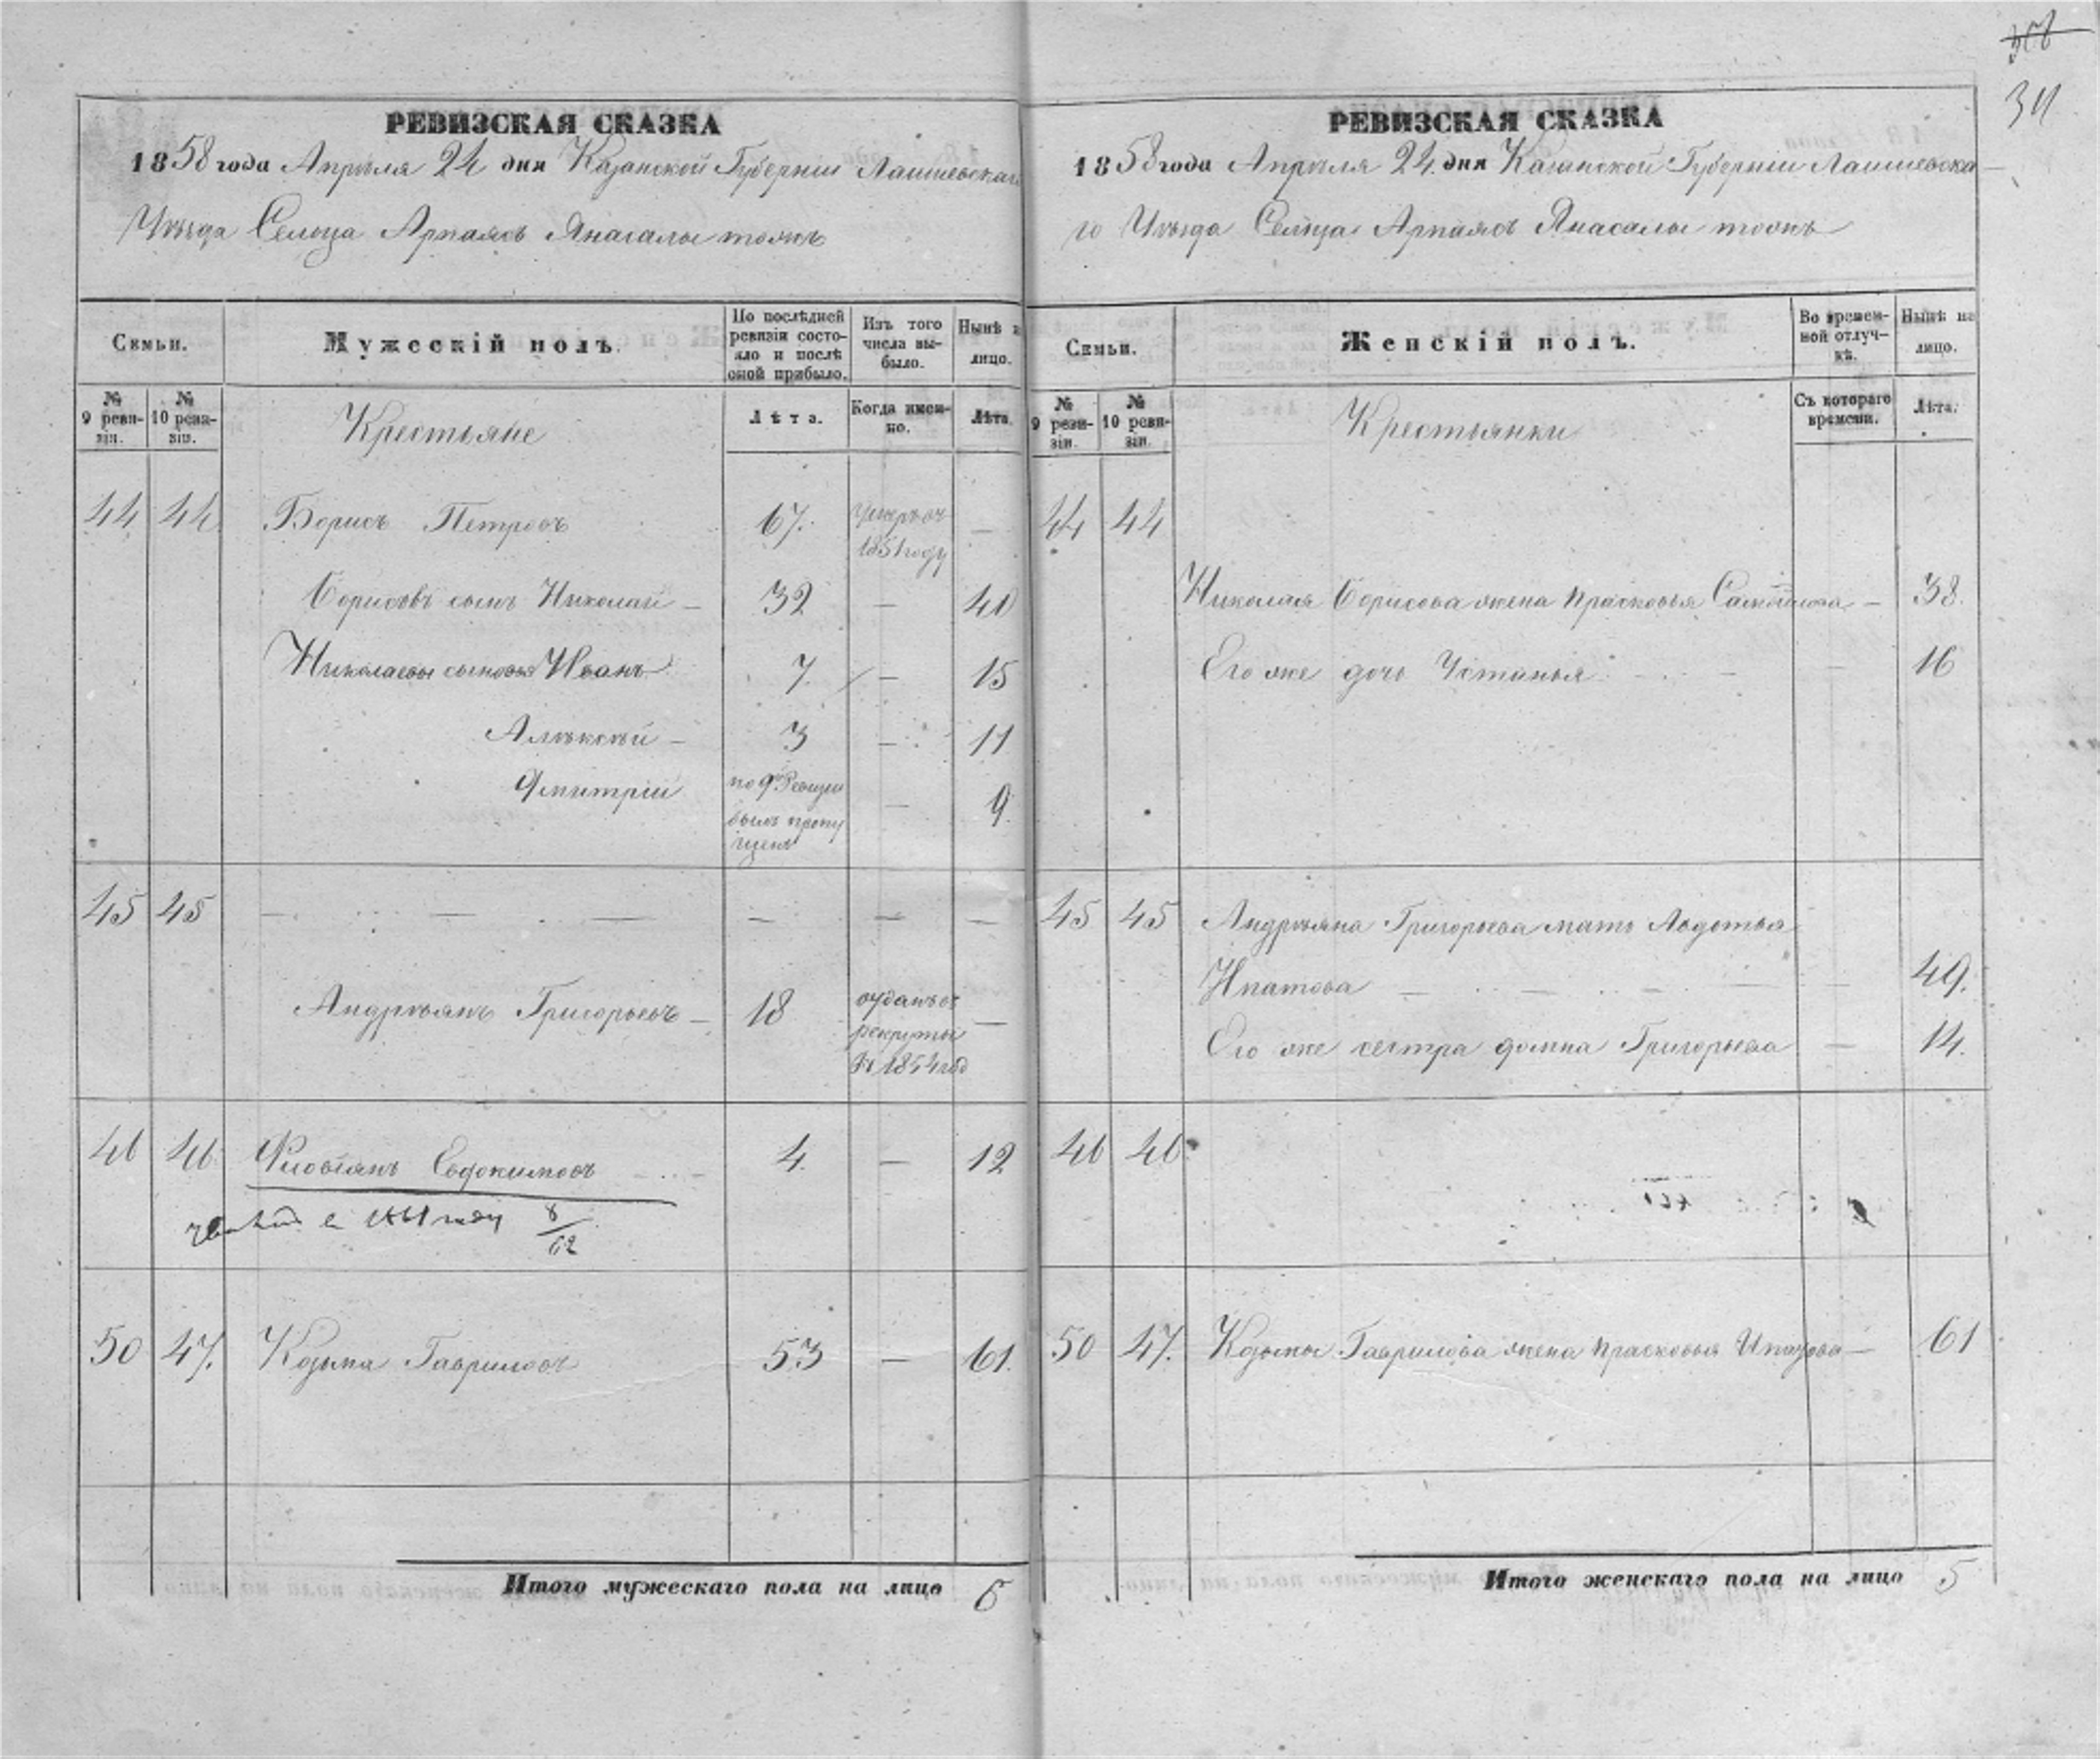 311
РЕВИЗСКАЯ СКАЗКА
1858 года Апрѣля 24 дня Казанской Губерніи Лаишевскаго
Уѣзда Сельца Арпаясъ Янасалы тожъ
Семьи.
Мужескій полъ.
По послѣдней ревизіи состояло и послѣ оной прибыло.
Изъ того числа выбыло.
Нынѣ на лицо.
№ 9 ревизіи.
№ 10 ревизіи.
Крестьяне
Лѣта.
Когда именно.
Лѣта.
44 44 Борисъ Петровъ 67. умеръ въ 1851 году —
Борисовъ сынъ Николай — 32 — 40
Николаевы сыновья Иванъ 7. — 15
Алексѣй — 3 — 11
Дмитрій по 9й Ревизіи былъ пропущенъ — 9.
45 45 — — — — — —
Андреянъ Григорьевъ — 18 отданъ въ рекруты въ 1854 год —
46 46 Фловіянъ Евдокимовъ — 4. — 12
в 1861 году 8/62
50 47. Козьма Гавриловъ 53 — 61.
Итого мужескаго пола на лицо 6
РЕВИЗСКАЯ СКАЗКА
1858 года Апрѣля 24. дня Казанской Губерніи Лаишевска-
го Уѣзда Сельца Арпаясъ Янасалы тожъ
Семьи.
Женскій полъ.
Во временной отлучкѣ.
Нынѣ на лицо.
№ 9 ревизіи.
№ 10 ревизіи.
Крестьянки
Съ котораго времени.
Лѣта.
44 44
Николая Борисова жена Прасковья Самойлова — 38.
Его же дочь Устинья — — 16
45 45 Андреяна Григорьева мать Авдотья
Ипатова — — — 49.
Его же сестра Домна Григорьева — 14.
46 46
50 47. Козьмы Гаврилова жена Прасковья — 61
Итого женскаго пола на лицо 5